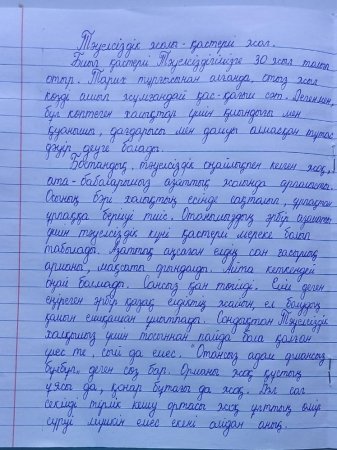 Тәуелсіздік жолы - қастерлі жол.
Биыл қастерлі Тәуелсіздігімізге 30 жыл толып
отыр. Тарих тұрғысынан алғанда, отыз жыл
көзді ашып жұмғандай қас-қағым сәт. Дегенмен,
бұл көптеген халықтар үшін қиындығы мен
қуанышы, дағдарысы мен дамуы алмасқан тұтас
дәуір деуге болады.
Бостандық, тәуелсіздік оңайлықпен келген жоқ,
ата-бабаларымыз азаттық жолында арпалысты.
Осының бәрі халықтың есінде сақталып, ұрпақтан
ұрпаққа берілуі тиіс. Отанымыздың әрбір азаматы
үшін тәуелсіздік күні қастерлі мереке болып
табылады. Азаттық аңсаған елдің сан ғасырлық
арманы, мақсаты орындалды. Айта кеткендей
оңай болмады. Сансыз қан төгілді. Елім деген
еңіреген әрбір қазақ елдіктің жайын, ел болудың
қамын ешқашан ұмытпады. Сондықтан Тәуелсіздік
халқымыз үшін тосыннан пайда бола қалған
емес те, сыйы да емес. "Отансыз адам ормансыз
бұлбұл" деген сөз бар. Орманы жоқ құстың
ұясы да, қонар бұтағы да жоқ. Дәл сол
секілді тірлік кешу ортасы жоқ ұлттың өмір
сүруі мүмкін емес екені айдан анық.